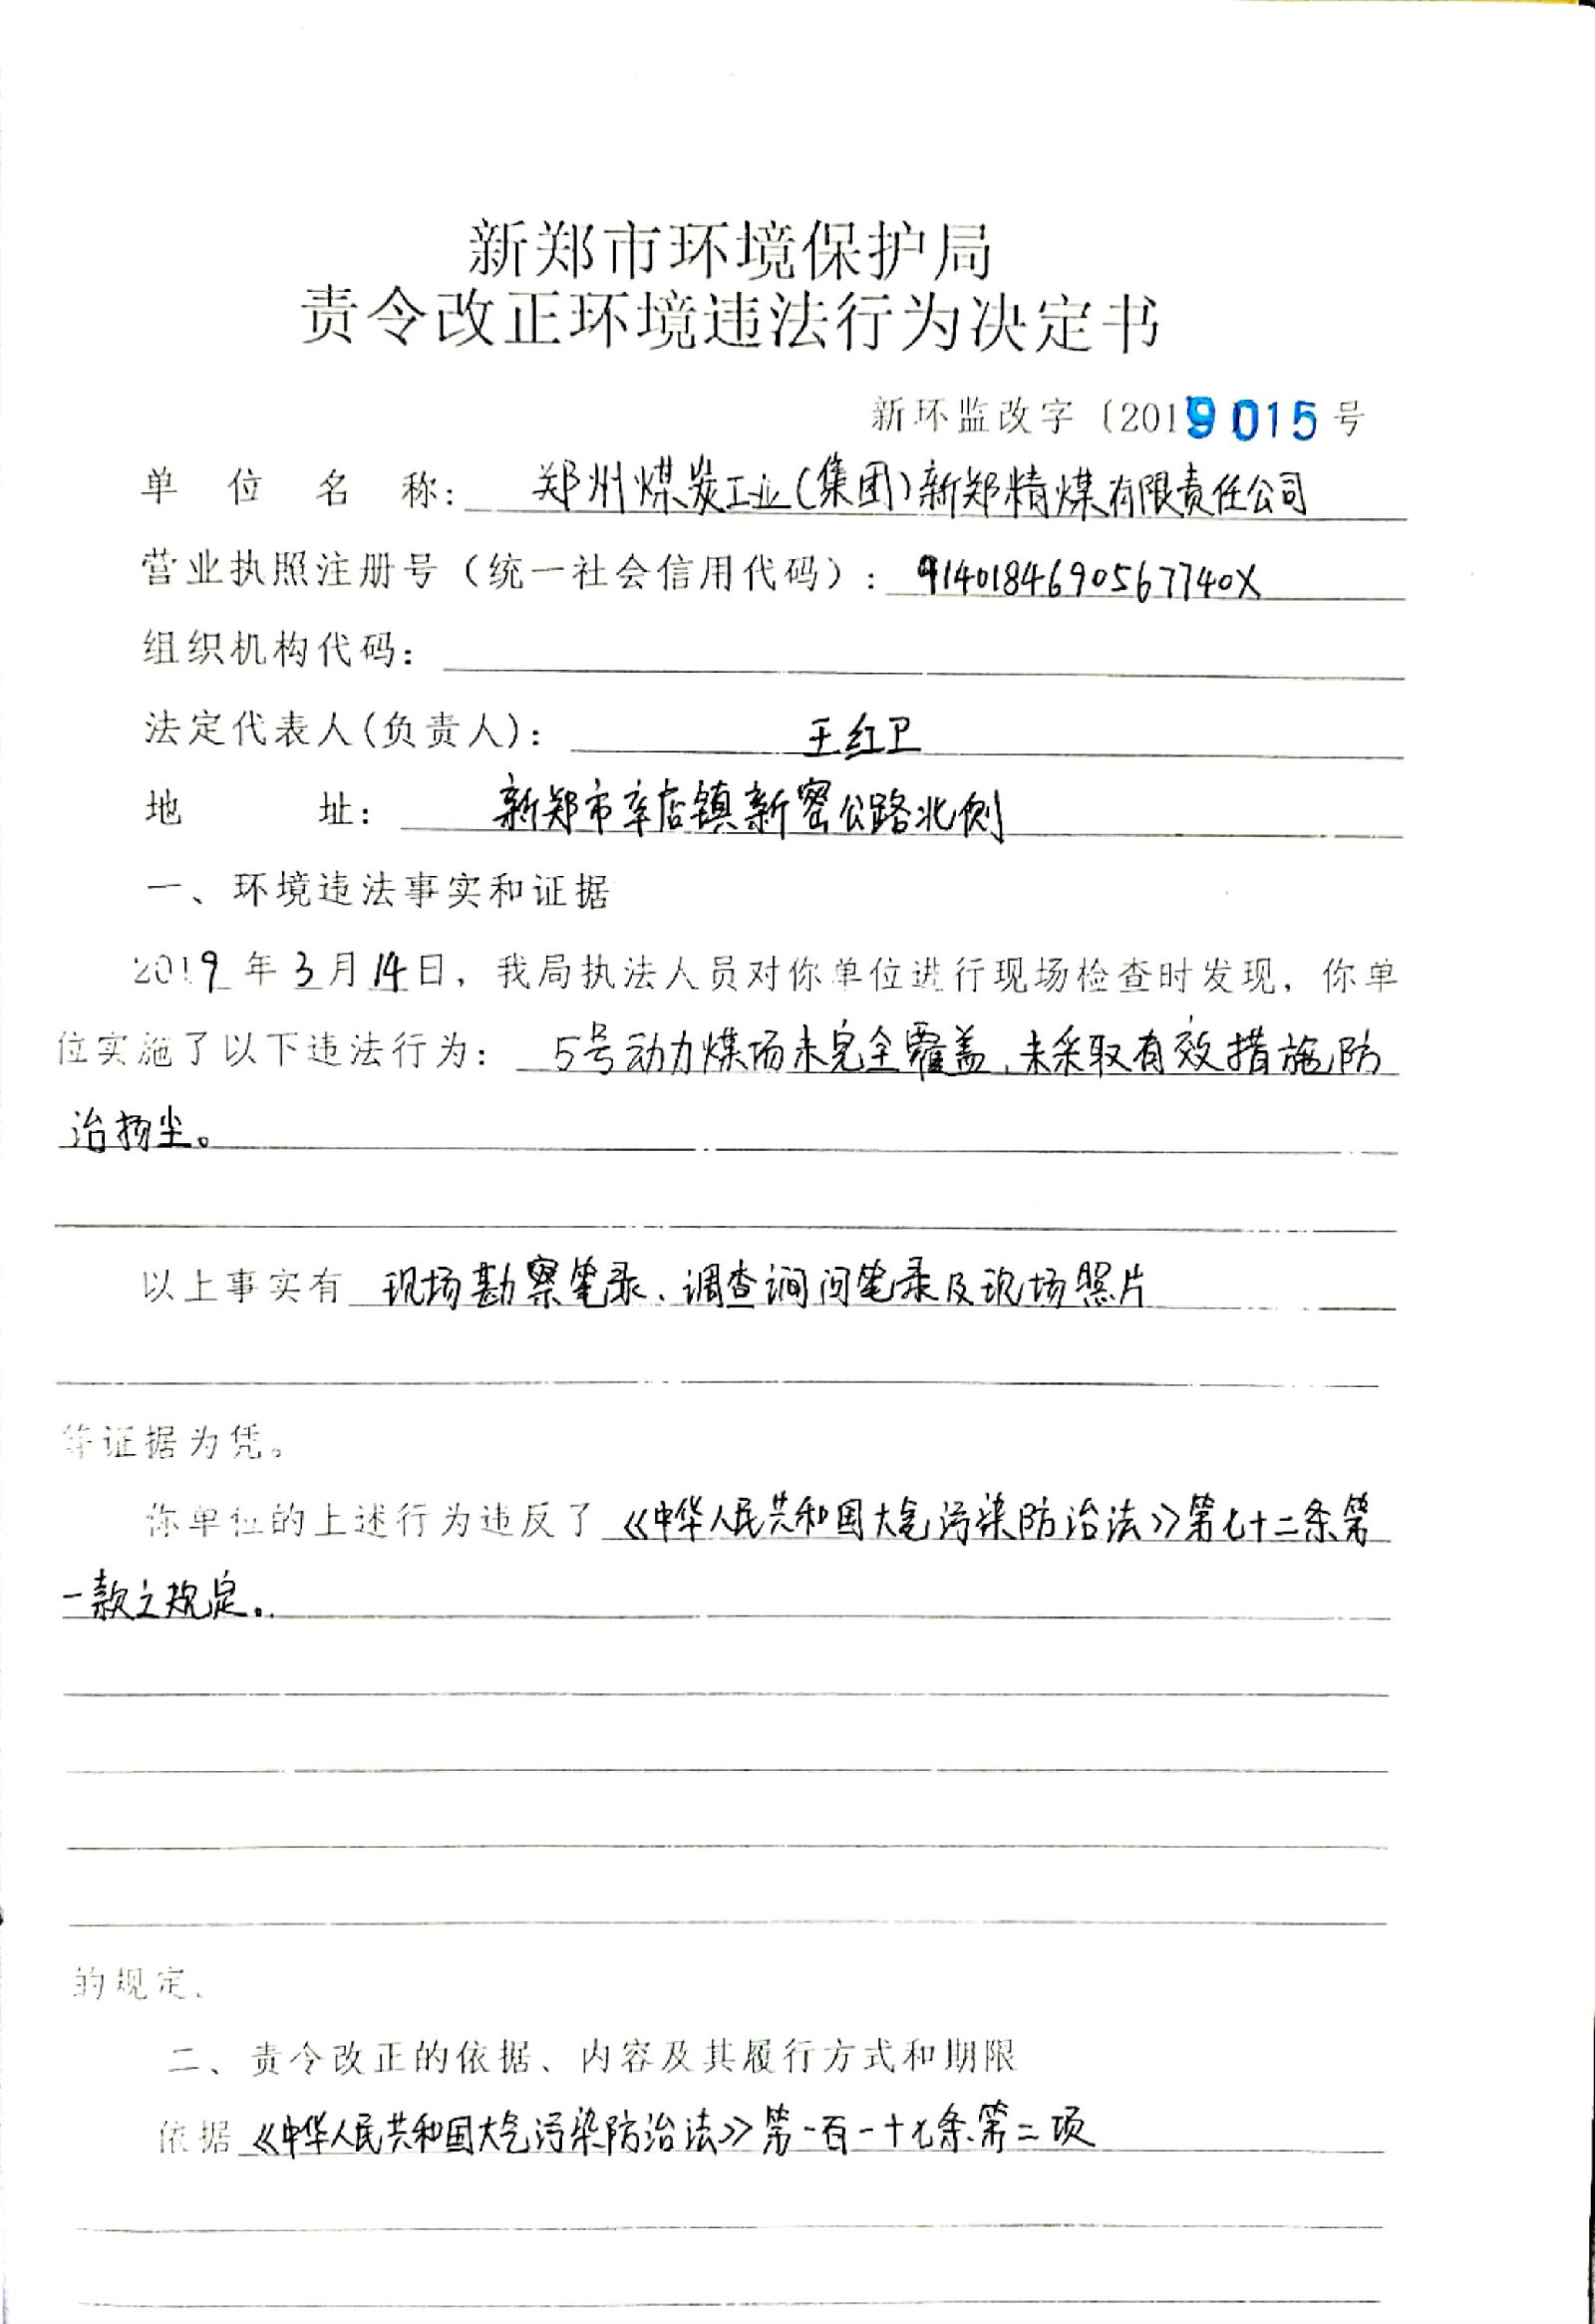 新郑市环境保护局
责令改正环境违法行为决定书
新环监改字〔2019 015号
单位名称：郑州煤炭工业(集团)新郑精煤有限责任公司
营业执照注册号（统一社会信用代码）：91401846905677 40X
组织机构代码：
法定代表人(负责人)：王红卫
地址：新郑市辛店镇新密公路北侧
一、环境违法事实和证据
2019年3月14日，我局执法人员对你单位进行现场检查时发现，你单
位实施了以下违法行为：5号动力煤场未完全覆盖、未采取有效措施防
治扬尘。
以上事实有 现场勘察笔录、调查询问笔录及现场照片
等证据为凭。
你单位的上述行为违反了《中华人民共和国大气污染防治法》第七十二条第
一款之规定。
的规定。
二、责令改正的依据、内容及其履行方式和期限
依据《中华人民共和国大气污染防治法》第一百一十七条第二项